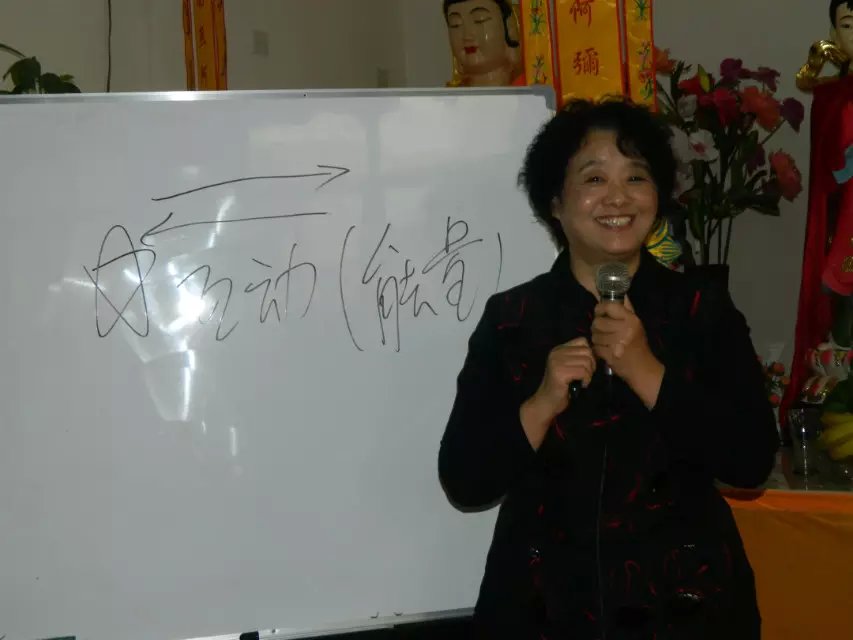 阿彌
互动(能量)